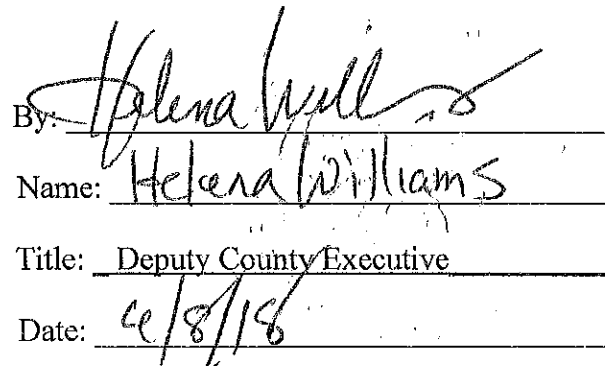 By: Helena Williams
Name: Helena Williams
Title: Deputy County Executive
Date: 4/8/18